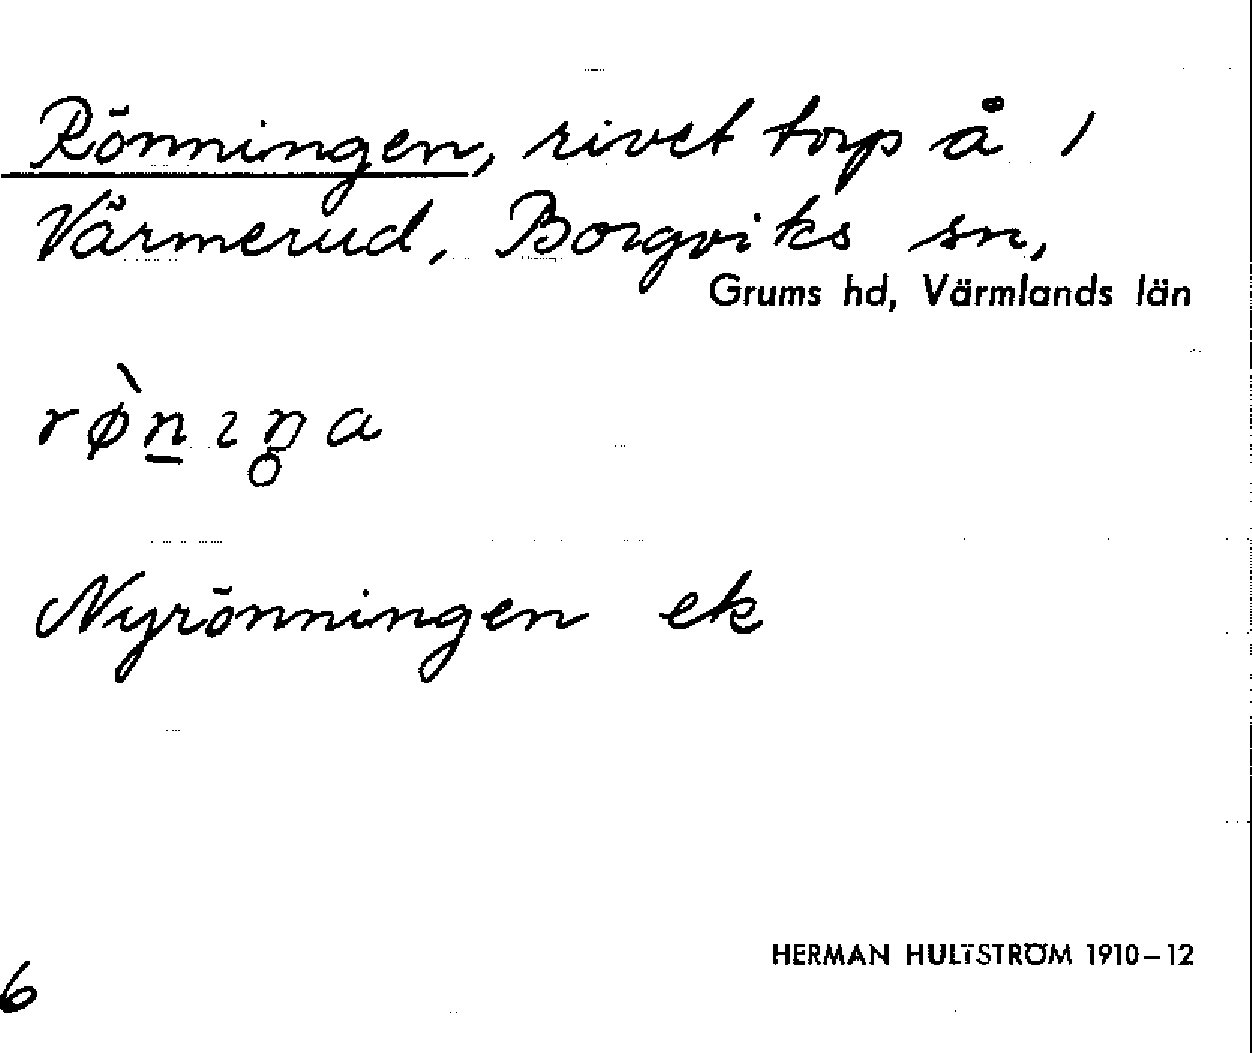 Rönningen, rivet torp å 1
Värmerud, Borgviks sn,
Grums hd, Värmlands län
rø̀n̲ɪŋ̥a
Nyrönningen ek
HERMAN HULTSTRÖM 1910–12
6